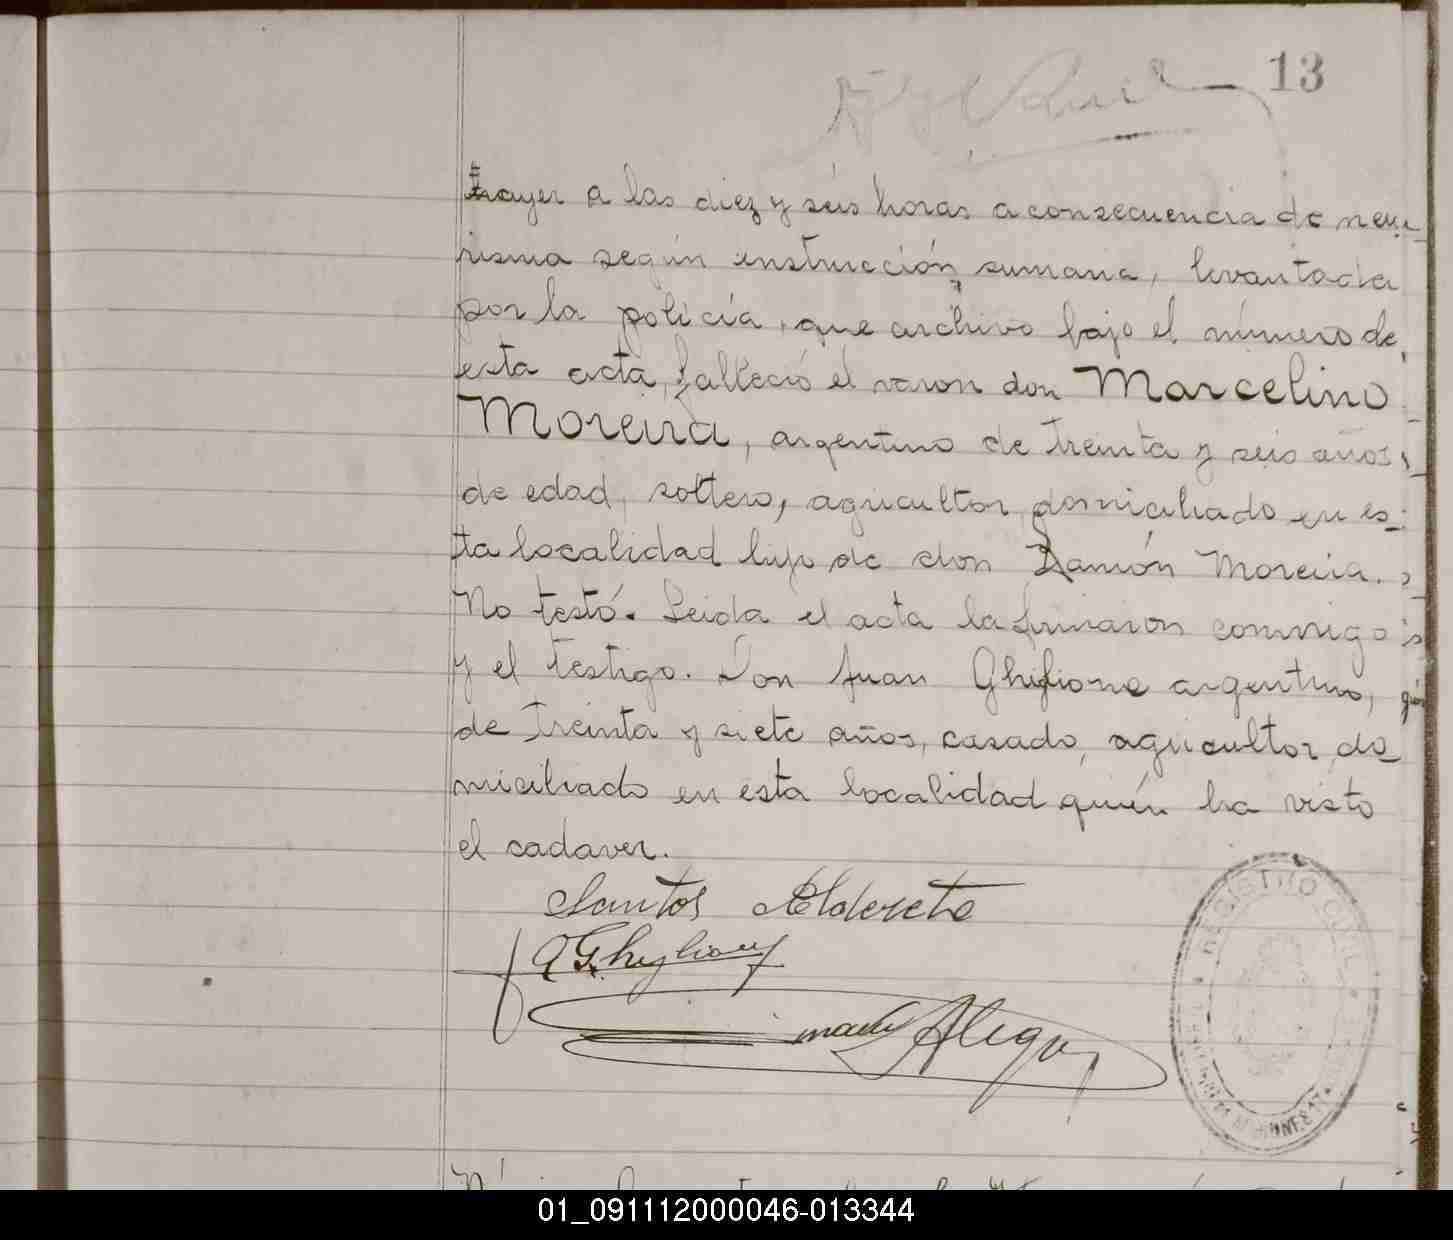 13
trayer a las diez y séis horas a consecuencia de neu-
risma según instrucción sumaria, levantada
por la policía, que archivo bajo el número de
esta acta, falleció el varon don Marcelino
Moreira, argentino de treinta y seis años
de edad, soltero, agricultor, domiciliado en es-
ta localidad hijo de don Ramón Moreira.
No testó. Leida el acta la firmaron conmigo
y el testigo. Don Juan Ghifione argentino,
de treinta y siete años, casado, agricultor, do-
miciliado en esta localidad quién ha visto
el cadaver.
Santos Alderete
Ghiglione
Alegre
REGISTRO CIVIL
MISIONES
01_091112000046-013344